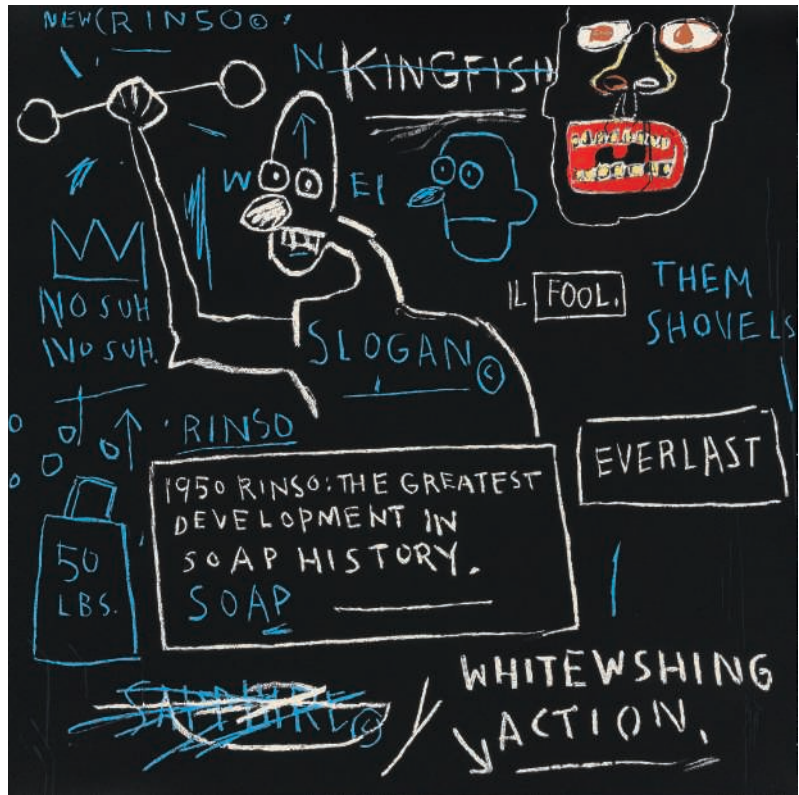 NEW(RINSO©
N KINGFISH
W EI
NO SUH
NO SUH.
SLOGAN©
IL FOOL.
THEM
SHOVELS
RINSO
1950 RINSO: THE GREATEST
DEVELOPMENT IN
SOAP HISTORY.
SOAP
EVERLAST
50
LBS.
SAPPHIRE©
WHITEWSHING
ACTION.